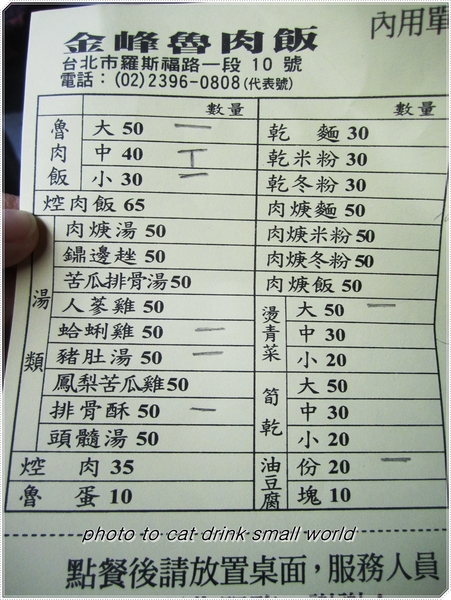 金峰魯肉飯
內用單
台北市羅斯福路一段 10 號
電話：(02)2396-0808(代表號)
數量
魯肉飯
大 50 一
中 40 丅
小 30 一
焢肉飯 65
湯類
肉焿湯 50
鼎邊趖 50
苦瓜排骨湯50
人蔘雞 50
蛤蜊雞 50 一
豬肚湯 50 一
鳳梨苦瓜雞50
排骨酥 50 一
頭髓湯 50
焢 肉 35
魯 蛋 10
數量
乾 麵 30
乾米粉 30
乾冬粉 30
肉焿麵 50
肉焿米粉 50
肉焿冬粉 50
肉焿飯 50
燙青菜
大 50 一
中 30
小 20
筍乾
大 50
中 30
小 20
油豆腐
份 20 一
塊 10
photo to cat drink small world
點餐後請放置桌面，服務人員